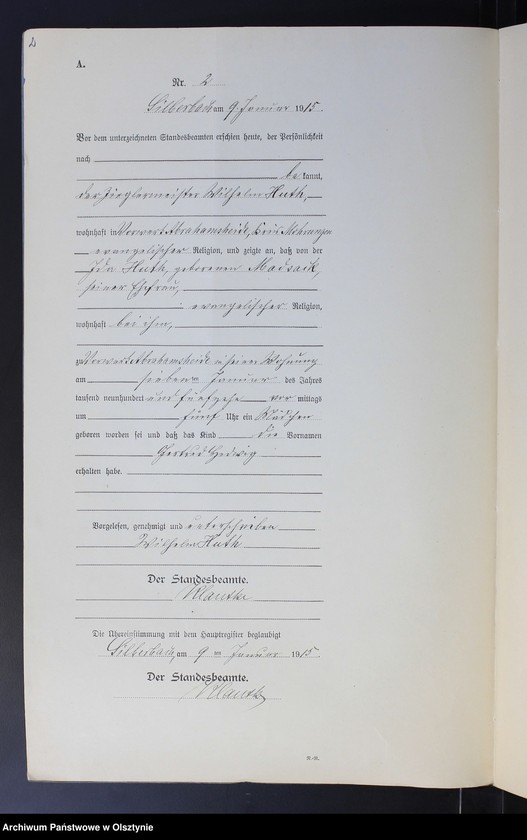 2
A.
Nr. 2
Silberbach am 9 Januar 1915.
Vor dem unterzeichneten Standesbeamten erschien heute, der Persönlichkeit
nach
be kannt,
der Zieglermeister Wilhelm Huth,
wohnhaft in Vorwerk Abrahamsheide, Kreis Mohrungen
evangelischer Religion, und zeigte an, daß von der
Ida Huth, geborenen Madsack,
seiner Ehefrau,
evangelischer Religion,
wohnhaft bei ihm,
zu Vorwerk Abrahamsheide in seiner Wohnung
am sieben ten Januar des Jahres
tausend neunhundert und fünfzehn vor mittags
um fünf Uhr ein Mädchen
geboren worden sei und daß das Kind die Vornamen
Gertrud Hedwig
erhalten habe.
Vorgelesen, genehmigt und unterschrieben
Wilhelm Huth
Der Standesbeamte.
Klautke
Die Übereinstimmung mit dem Hauptregister beglaubigt
Silberbach, am 9 ten Januar 1915.
Der Standesbeamte.
Klautke
Archiwum Państwowe w Olsztynie